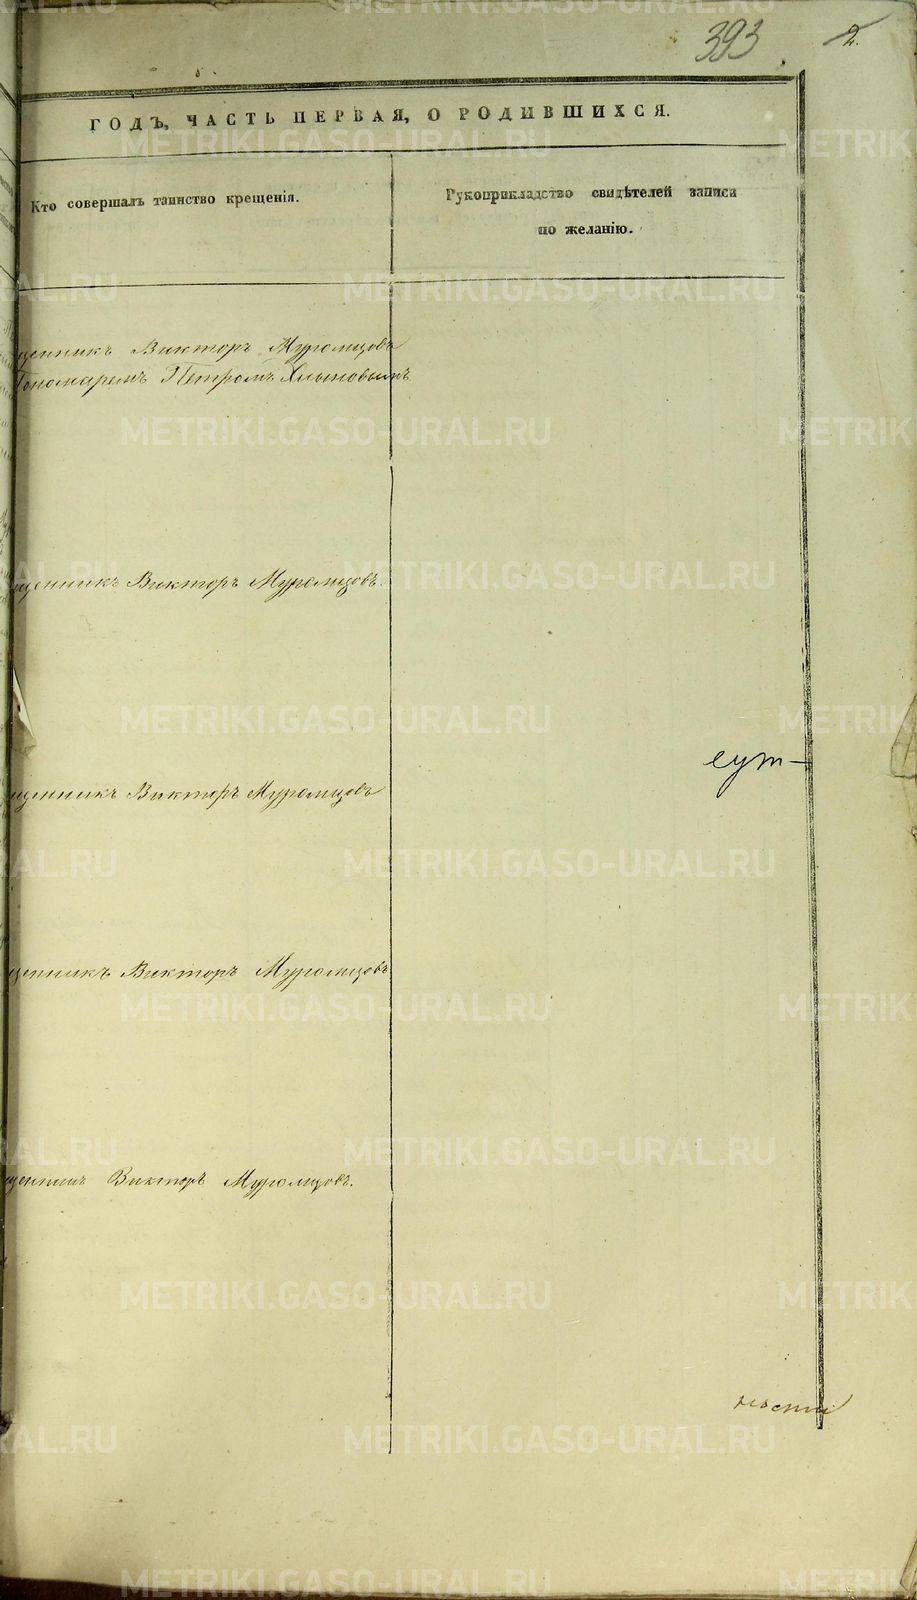 393 2.
ГОДЪ, ЧАСТЬ ПЕРВАЯ, О РОДИВШИХСЯ.
Кто совершалъ таинство крещенія.
Рукоприкладство свидѣтелей записи
по желанію.
щенникъ Викторъ Муромцовъ
Пономаремъ Петромъ Хлыновымъ
щенникъ Викторъ Муромцовъ.
щенникъ Викторъ Муромцовъ
щенникъ Викторъ Муромцовъ
щенникъ Викторъ Муромцовъ.
METRIKI.GASO-URAL.RU